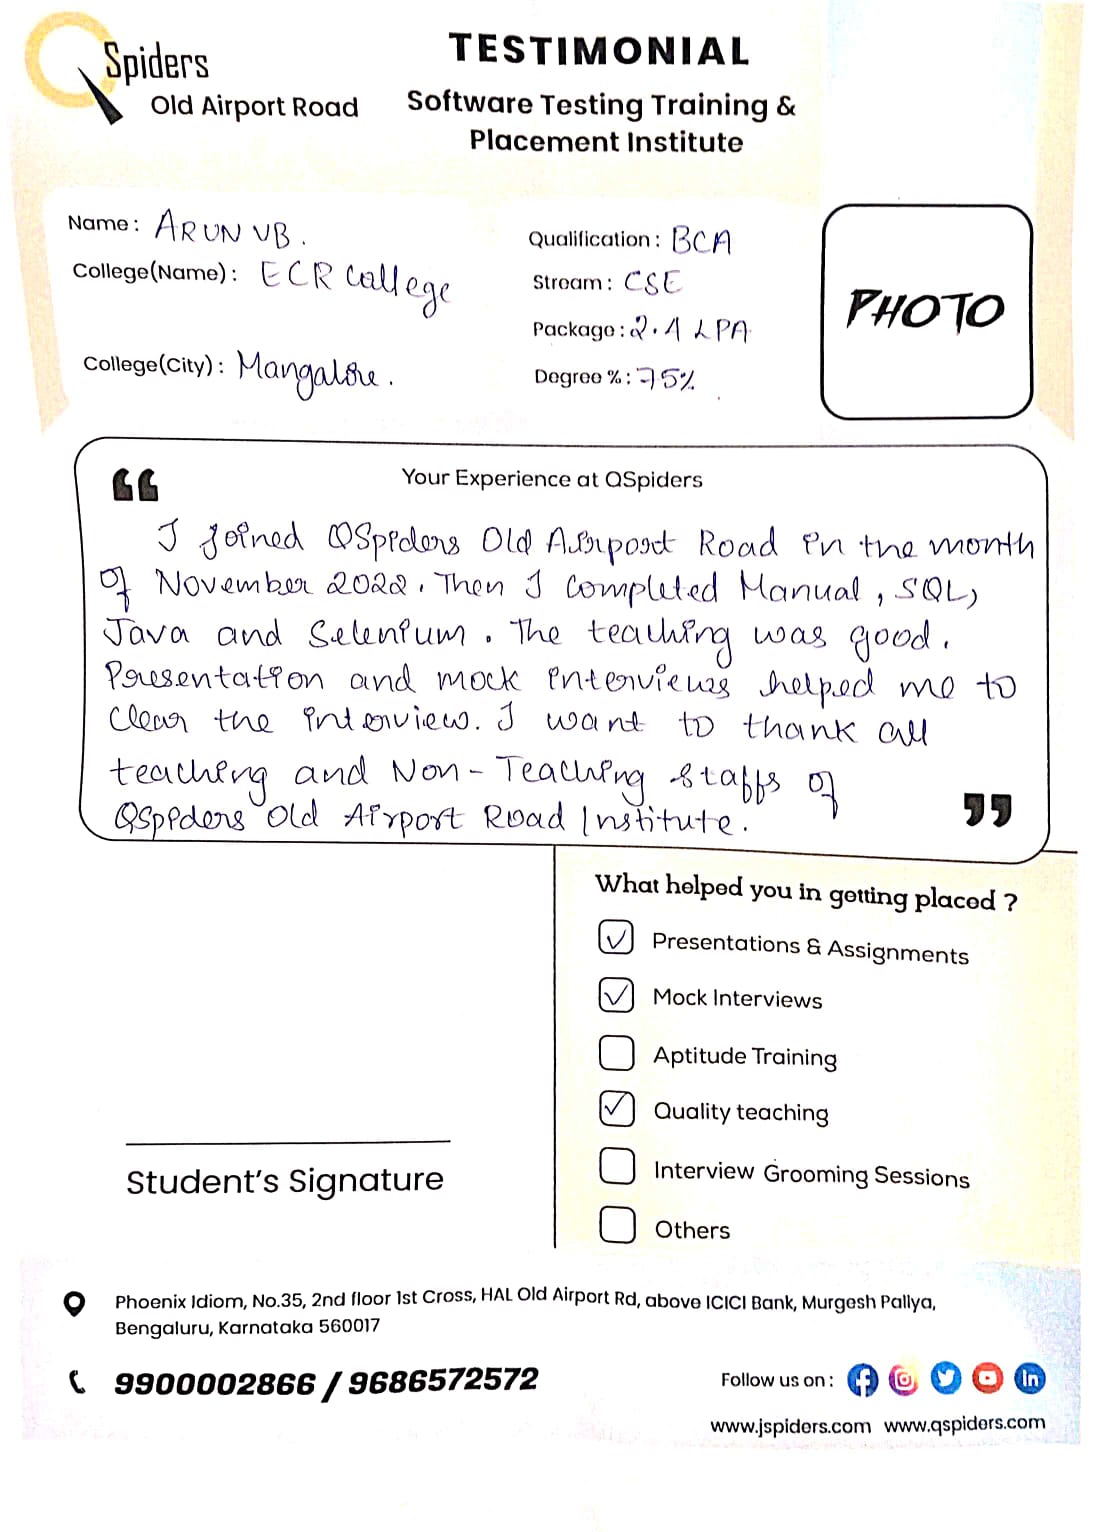 QSpiders
Old Airport Road
TESTIMONIAL
Software Testing Training &
Placement Institute
Name : ARUN VB.
College(Name) : ECR College
College(City) : Mangalore.
Qualification : BCA
Stream : CSE
Package : 2.1 LPA
Degree % : 75%
PHOTO
Your Experience at QSpiders
“
I joined QSpiders Old Airport Road in the month
of November 2022. Then I Completed Manual, SQL,
Java and Selenium. The teaching was good.
Presentation and mock interviews helped me to
Clear the interview. I want to thank all
teaching and Non-Teaching staffs of
QSpiders Old Airport Road Institute.
”
What helped you in getting placed ?
Presentations & Assignments
Mock Interviews
Aptitude Training
Quality teaching
Interview Grooming Sessions
Others
Student’s Signature
Phoenix Idiom, No.35, 2nd floor 1st Cross, HAL Old Airport Rd, above ICICI Bank, Murgesh Pallya,
Bengaluru, Karnataka 560017
9900002866 / 9686572572
Follow us on :
www.jspiders.com www.qspiders.com